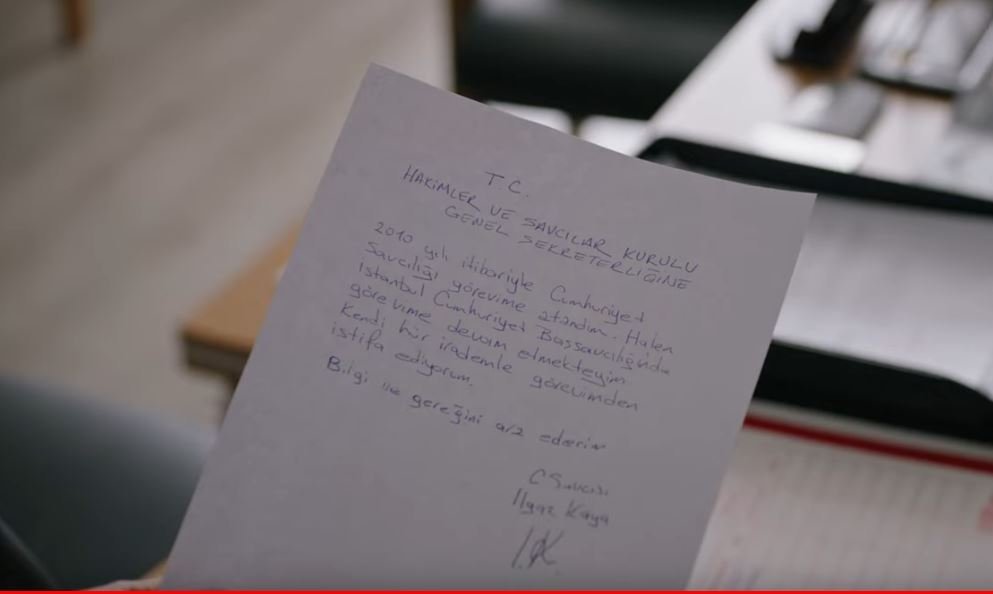 T.C.
HAKİMLER VE SAVCILAR KURULU
GENEL SEKRETERLİĞİNE
2010 yılı itibariyle Cumhuriyet
Savcılığı görevime atandım. Halen
İstanbul Cumhuriyet Başsavcılığında
görevime devam etmekteyim
Kendi hür irademle görevimden
istifa ediyorum.
Bilgi ve gereğini arz ederim
C Savcısı
Ilgaz Kaya